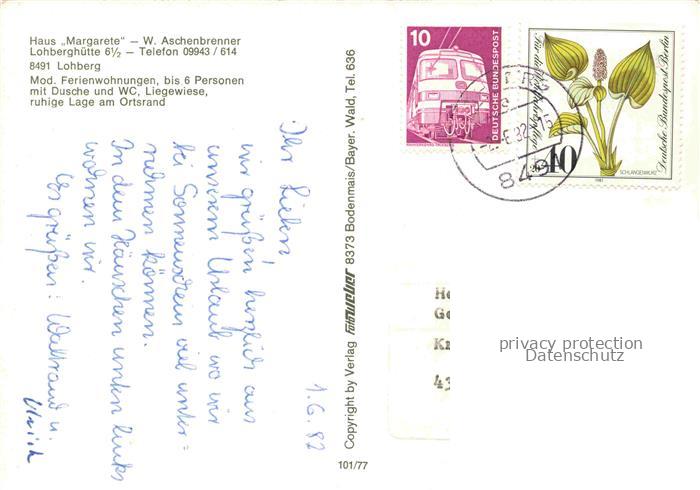 Haus „Margarete" – W. Aschenbrenner
Lohberghütte 6½ – Telefon 09943 / 614
8491 Lohberg
Mod. Ferienwohnungen, bis 6 Personen
mit Dusche und WC, Liegewiese,
ruhige Lage am Ortsrand
1.6.82
Ihr Lieben,
wir grüßen herzlich aus
unserem Urlaub wo wir
bei Sonnenschein viel unter=
nehmen können.
In dem Häuschen unten links
wohnen wir.
Es grüßen: Waltraud u.
Ulrich
Copyright by Verlag Foto Weber 8373 Bodenmais/Bayer. Wald, Tel. 636
101/77
10
DEUTSCHE BUNDESPOST
Für die Wohlfahrtspflege
Deutsche Bundespost Berlin
40
SCHLANGENWURZ
1981
849
He
Ge
Kr
43
privacy protection
Datenschutz